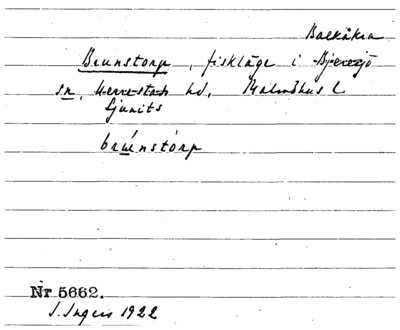 Balkåkra
Brunstorp, fiskläge i Bjeresjö
sn, Herrestads hd, Malmöhus l
Ljunits
brúnstórp
Nr 5662.
I. Ingers 1922